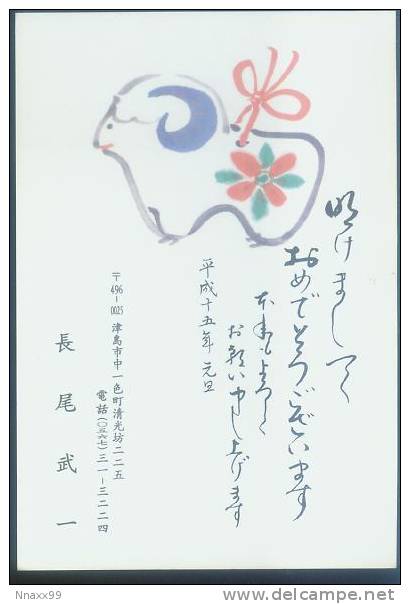 明けまして
おめでとうございます
本年もよろしく
お願い申し上げます
平成十五年 元旦
〒496-0025 津島市中一色町清光坊二二五
電話(〇五六七)三一-三二二四
長尾武一
Nnaxx99
delcampe.net